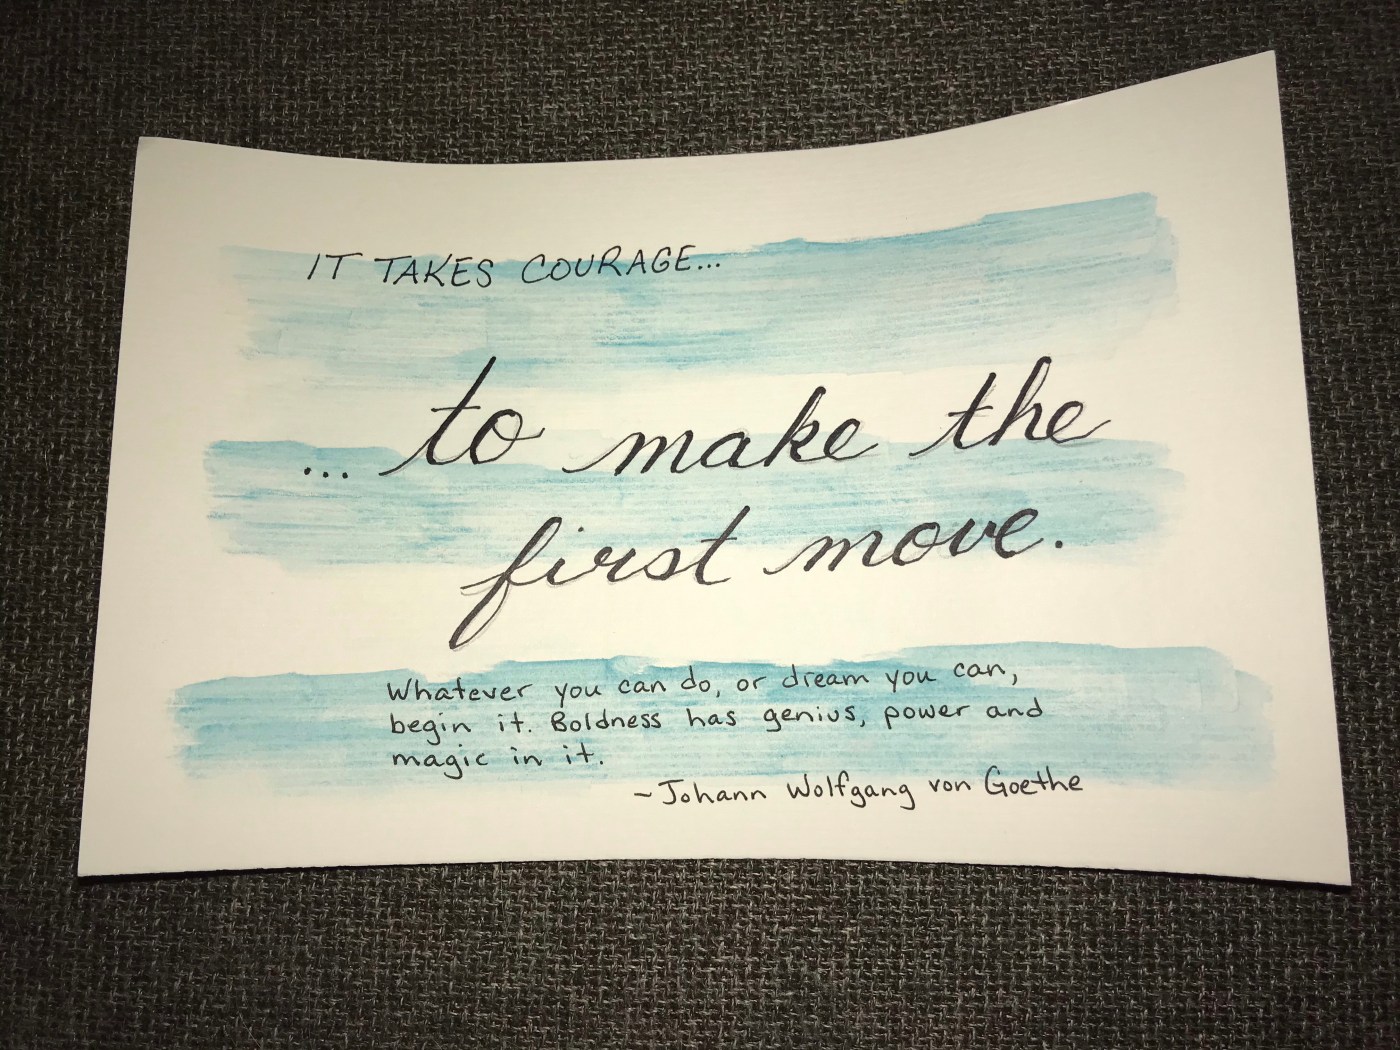 IT TAKES COURAGE...
... to make the
first move.
Whatever you can do, or dream you can,
begin it. Boldness has genius, power and
magic in it.
~Johann Wolfgang von Goethe